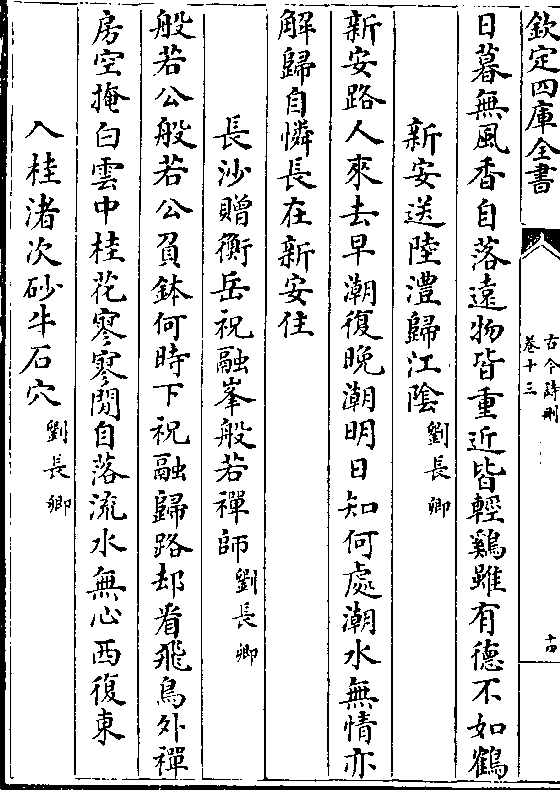 欽定四庫全書
古今詩刪
卷十三
十四
日暮無風香自落遠物皆重近皆輕鷄雖有德不如鶴
新安送陸澧歸江陰
劉長卿
新安路人來去早潮復晚潮明日知何處潮水無情亦
解歸自憐長在新安住
長沙贈衡岳祝融峯般若禪師
劉長卿
般若公般若公負鉢何時下祝融歸路却看飛鳥外禪
房空掩白雲中桂花寥寥閒自落流水無心西復東
入桂渚次砂牛石穴
劉長卿